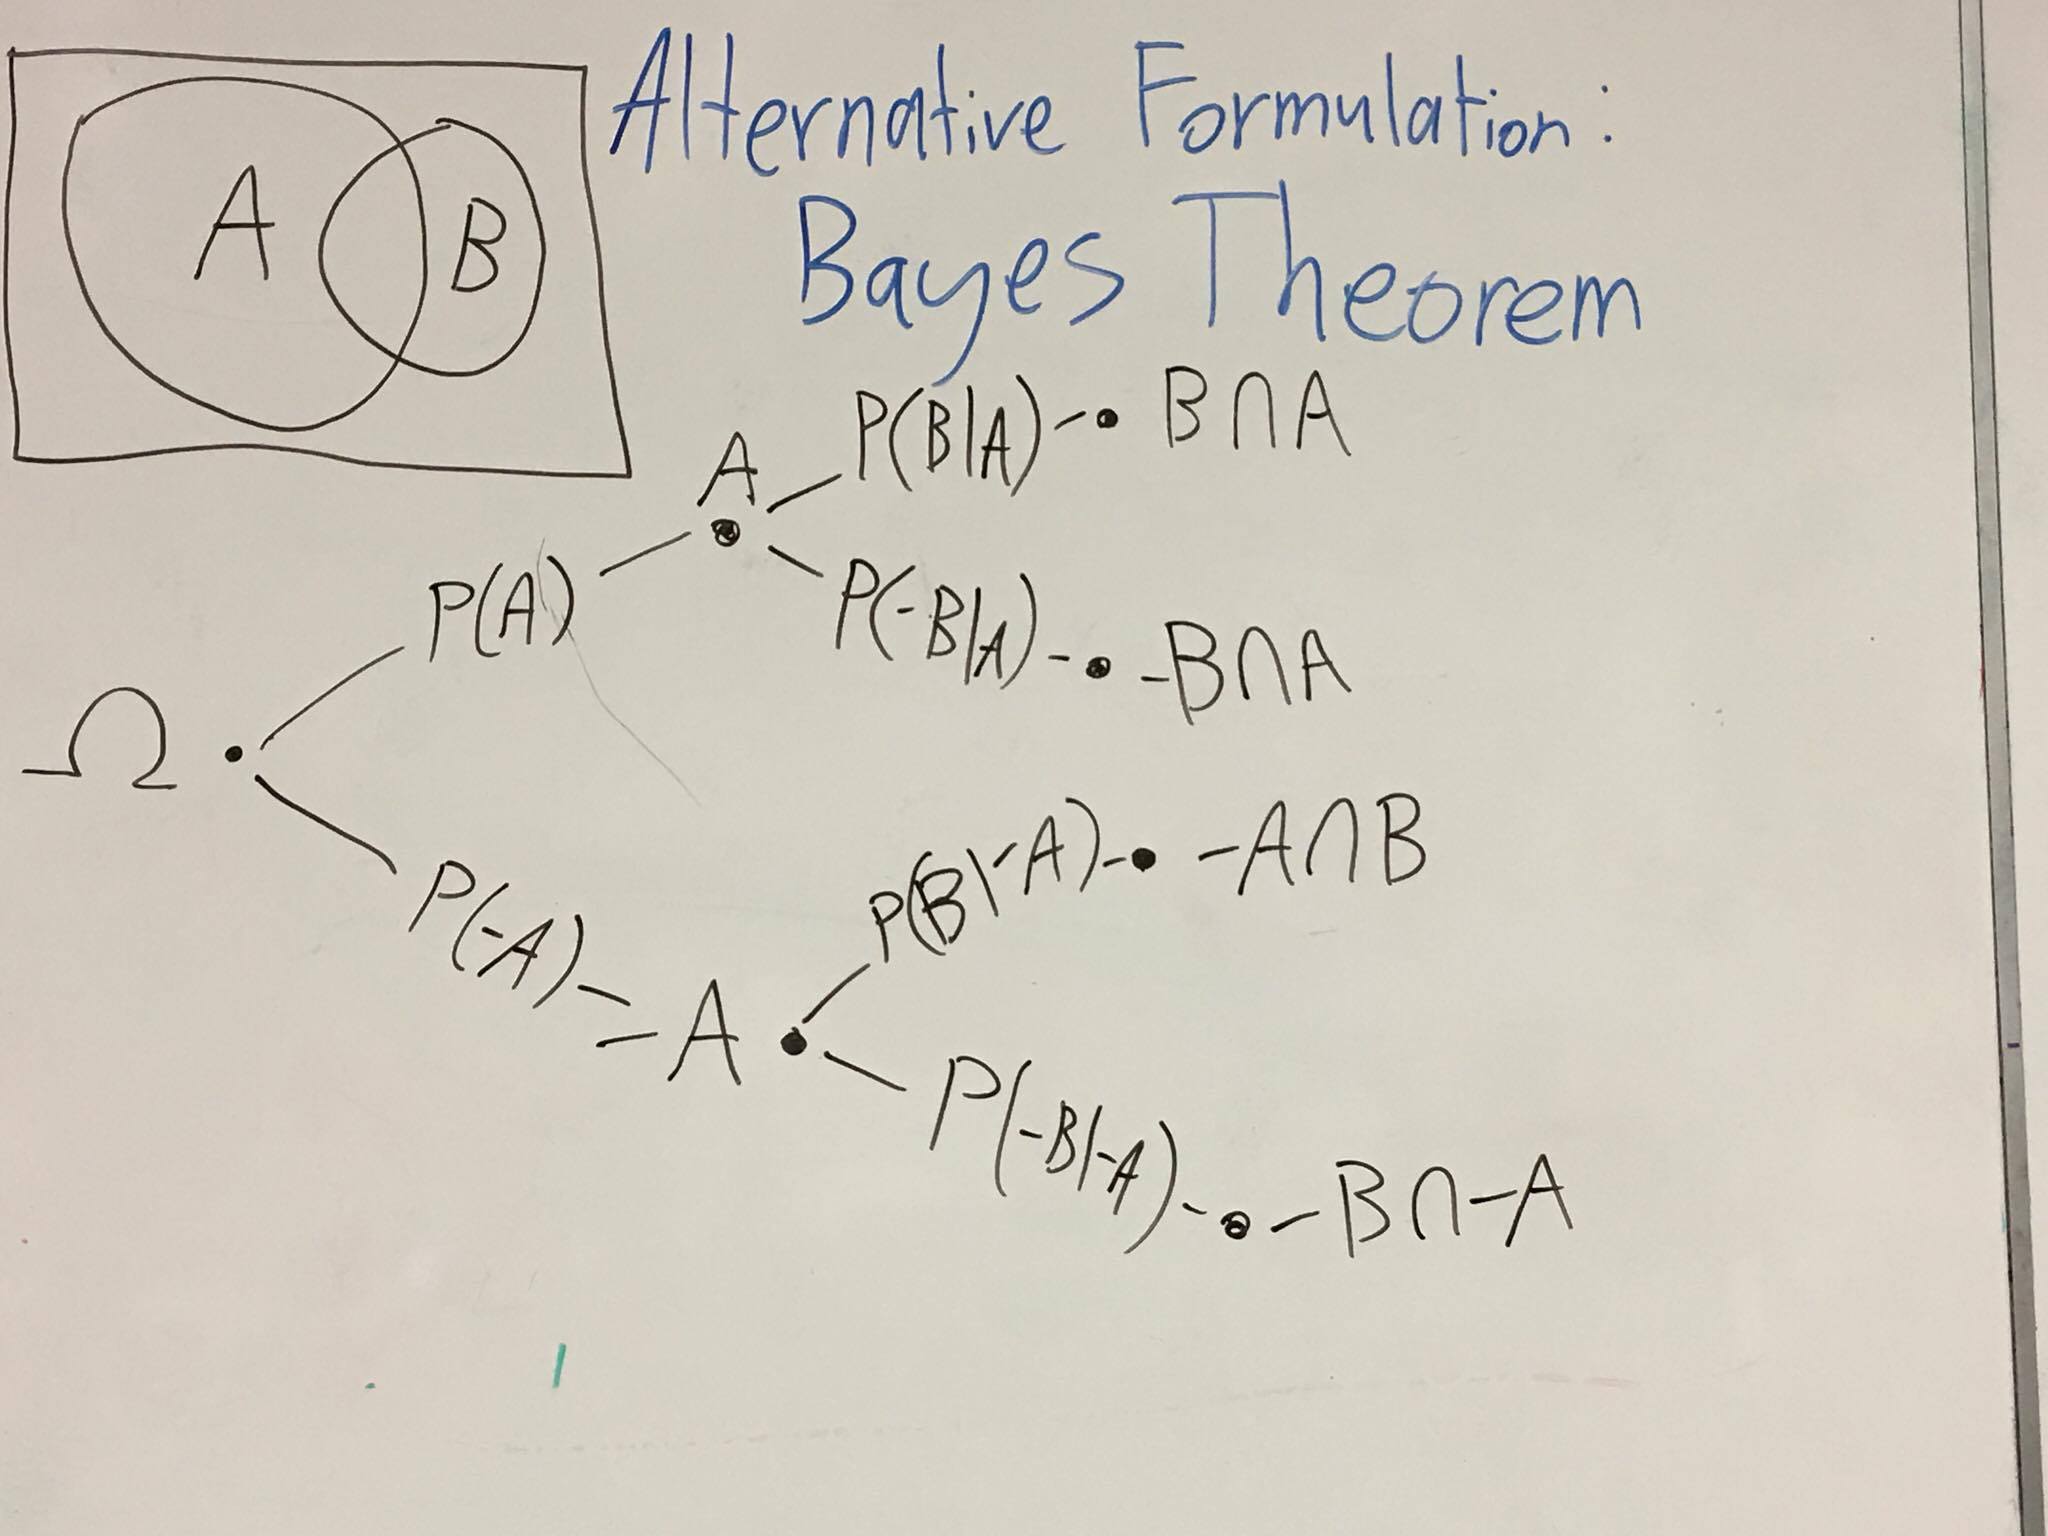 Alternative Formulation:
Bayes Theorem
A B
P(B|A) B∩A
A
P(A)
P(-B|A) -B∩A
Ω
P(B|-A) -A∩B
P(-A)
-A
P(-B|-A) -B∩-A